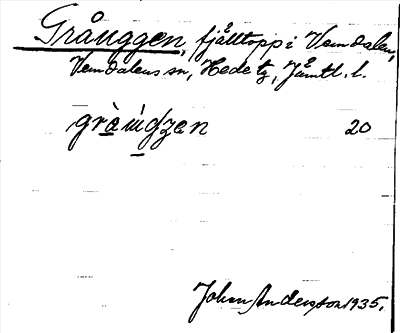 Grånggen, fjälltopp i Vemdalen,
Vemdalens sn, Hede tg, Jämtl. l.
gràńgzen 20
Johan Andersson 1935.